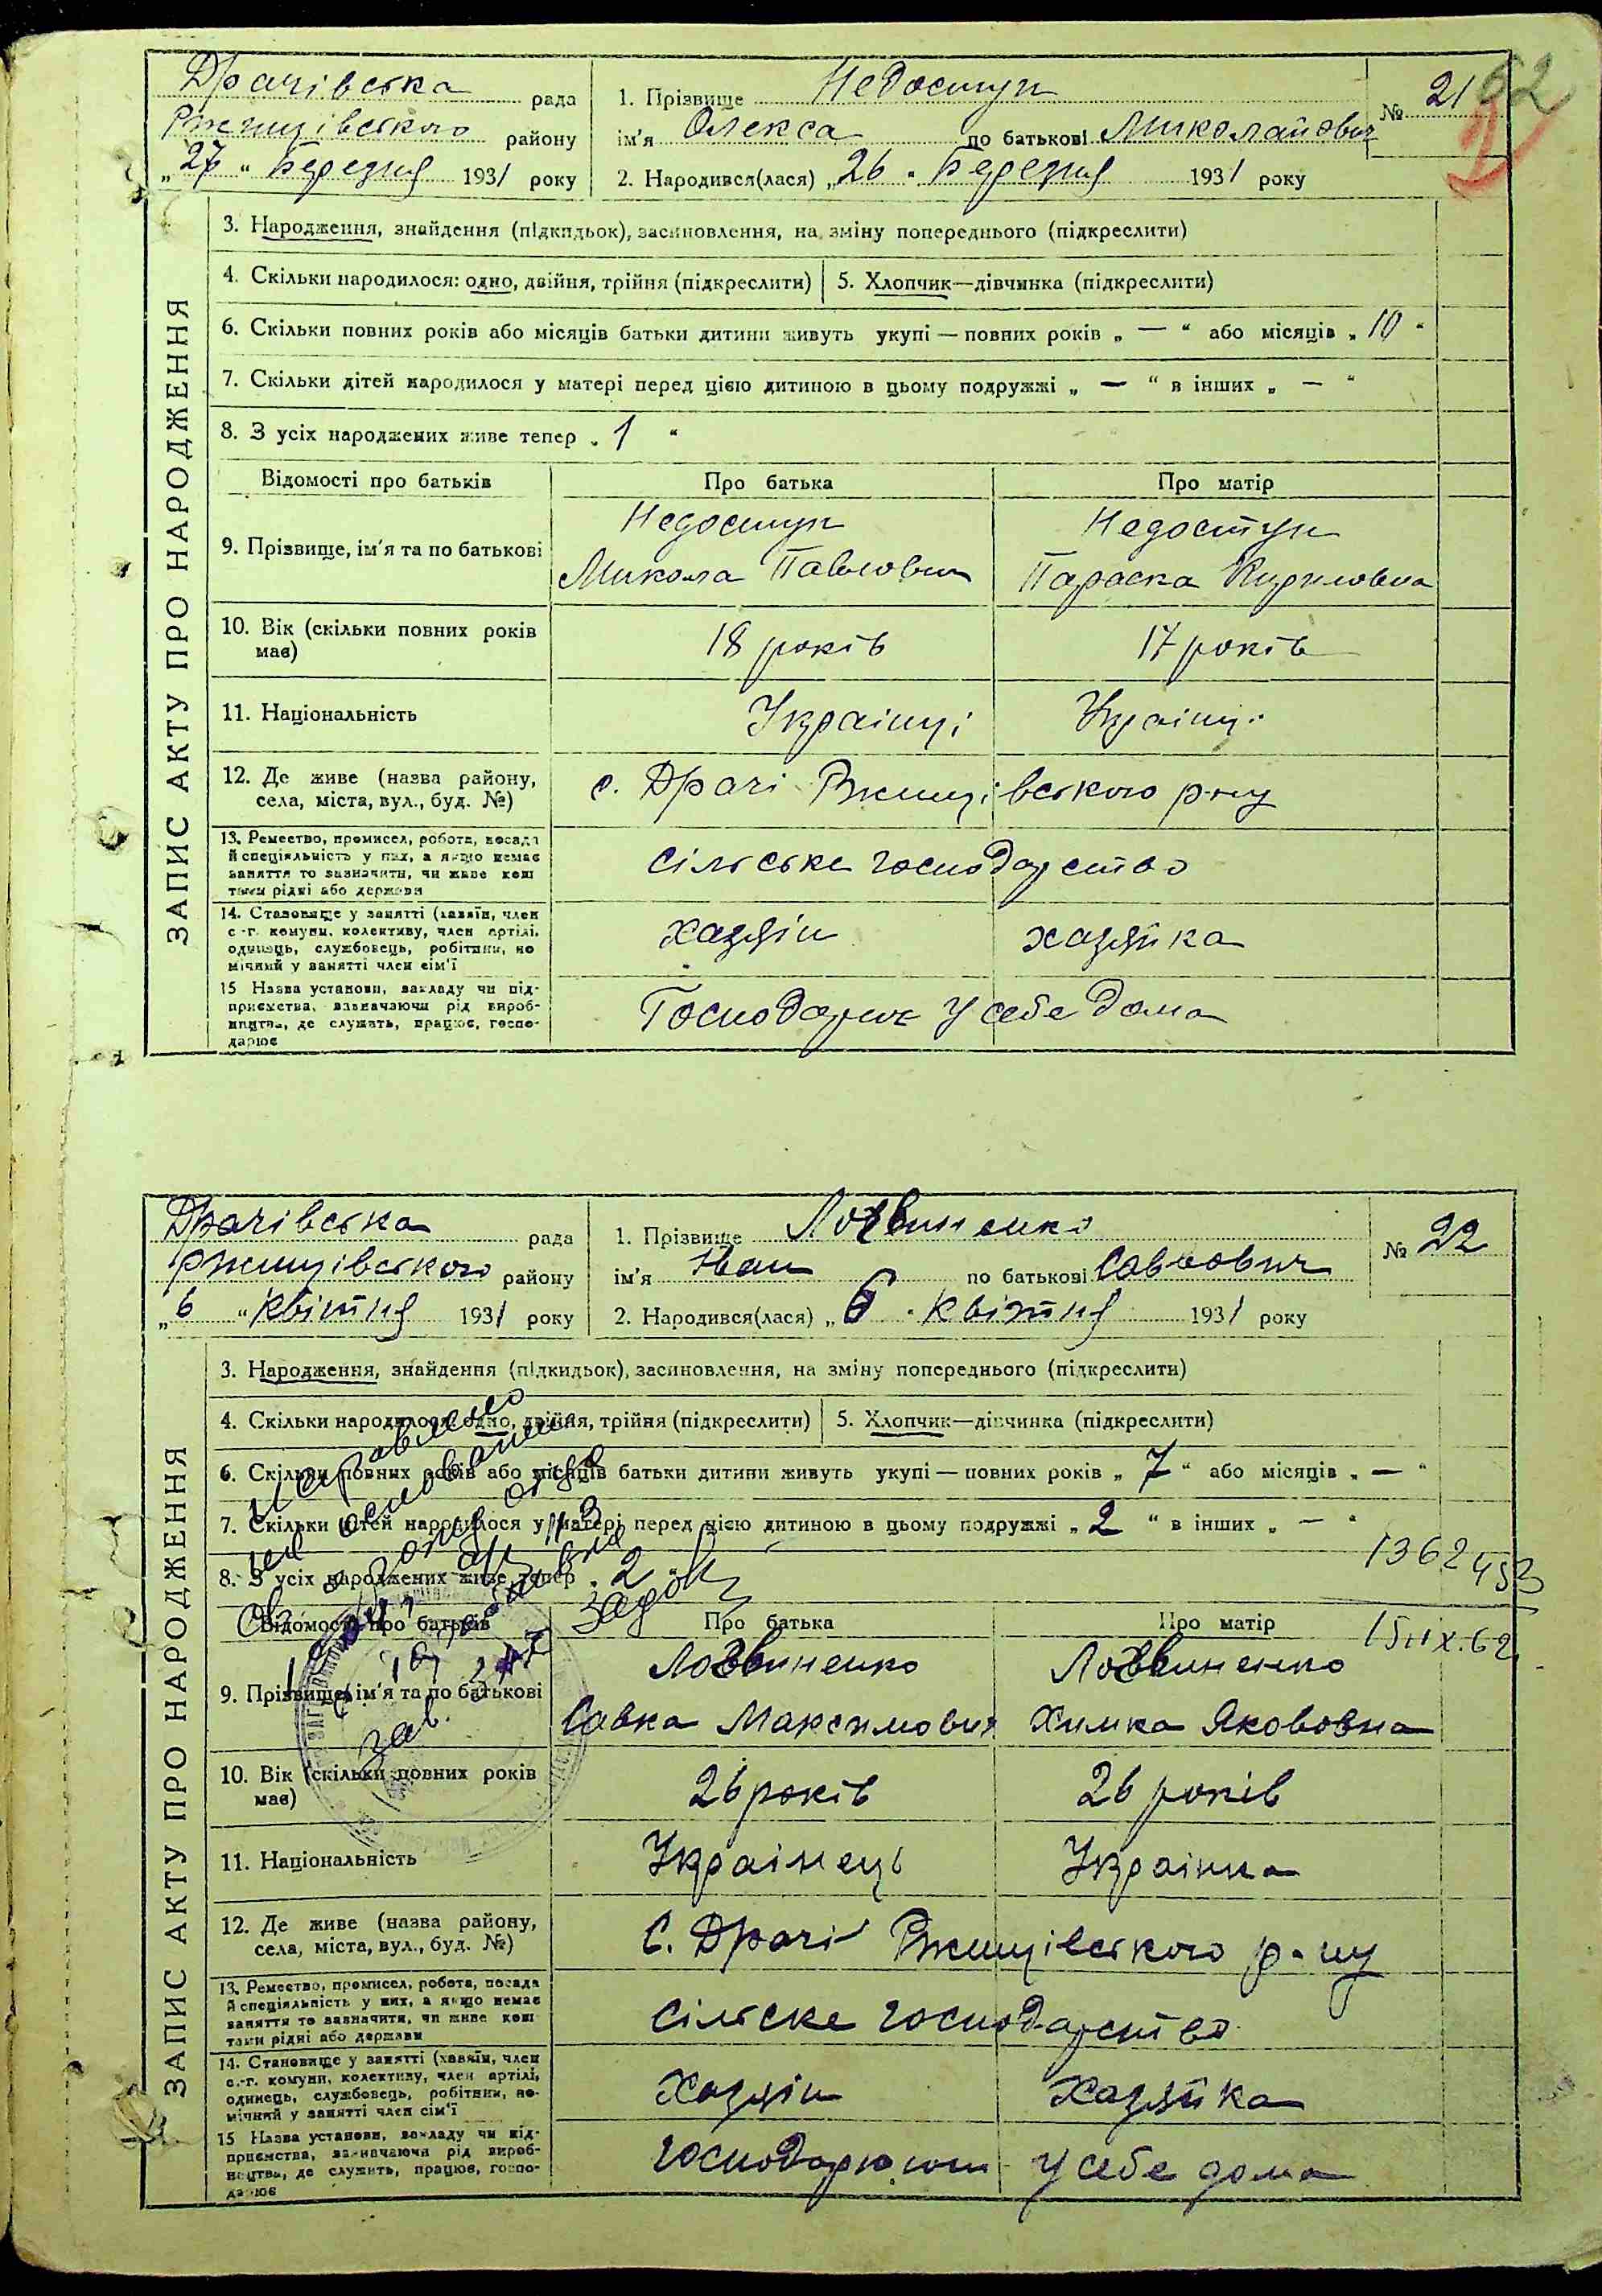 Драчівська рада
Ржищівського району
„27“ Березня 1931 року
1. Прізвище Недоступ
ім'я Олекса по батькові Миколайович
2. Народився(лася) „26“ Березня 1931 року
№ 21
62
ЗАПИС АКТУ ПРО НАРОДЖЕННЯ
3. Народження, знайдення (підкидьок), засиновлення, на зміну попереднього (підкреслити)
4. Скільки народилося: одно, двійня, трійня (підкреслити) 5. Хлопчик—дівчинка (підкреслити)
6. Скільки повних років або місяців батьки дитини живуть укупі — повних років „ — “ або місяців „ 10 “
7. Скільки дітей народилося у матері перед цією дитиною в цьому подружжі „ — “ в інших „ — “
8. З усіх народжених живе тепер „ 1 “
Відомості про батьків Про батька Про матір
9. Прізвище, ім'я та по батькові
Недоступ Недоступ
Микола Павлович Параска Кириловна
10. Вік (скільки повних років
має)
18 років 17 років
11. Національність Українці Українці
12. Де живе (назва району,
села, міста, вул., буд. №)
с. Драчі Ржищівського р-ну
13. Ремество, промисел, робота, посада
й спеціяльність у них, а якщо немає
заняття то зазначити, чи живе кош
тами рідні або держави
сільське господарство
14. Становище у занятті (хазяїн, член
с.-г. комуни, колективу, член артілі,
одинець, службовець, робітник, по
мічний у занятті член сім'ї
хазяїн хазяйка
15 Назва установи, закладу чи під-
приємства, зазначаючи рід вироб-
ництва, де служить, працює, госпо-
дарює
у себе дома
Драчівська рада
Ржищівського району
„6“ Квітня 1931 року
1. Прізвище Логвиненко
ім'я Іван по батькові Савкович
2. Народився(лася) „6“ Квітня 1931 року
№ 22
ЗАПИС АКТУ ПРО НАРОДЖЕННЯ
3. Народження, знайдення (підкидьок), засиновлення, на зміну попереднього (підкреслити)
4. Скільки народилося: одно, двійня, трійня (підкреслити) 5. Хлопчик—дівчинка (підкреслити)
6. Скільки повних років або місяців батьки дитини живуть укупі — повних років „ 7 “ або місяців „ — “
7. Скільки дітей народилося у матері перед цією дитиною в цьому подружжі „ 2 “ в інших „ — “
8. З усіх народжених живе тепер „ 2
исправлено
на основании
1362
Відомості про батьків Про батька Про матір
9. Прізвище, ім'я та по батькові
Логвиненко Логвиненко
Савка Максимович Химка Якововна
зав.
10. Вік (скільки повних років
має)
26 років 26 років
11. Національність Українець Українка
12. Де живе (назва району,
села, міста, вул., буд. №)
С. Драчі Ржищівського р-ну
13. Ремество, промисел, робота, посада
й спеціяльність у них, а якщо немає
заняття то зазначити, чи живе кош
тами рідні або держави
сільске господарство
14. Становище у занятті (хазяїн, член
с.-г. комуни, колективу, член артілі,
одинець, службовець, робітник, по-
мічний у занятті член сім'ї
Хазяїн Хазяйка
15 Назва установи, закладу чи під-
приємства, зазначаючи рід вироб-
ництва, де служить, працює, госпо-
дарює
господарюють у себе дома